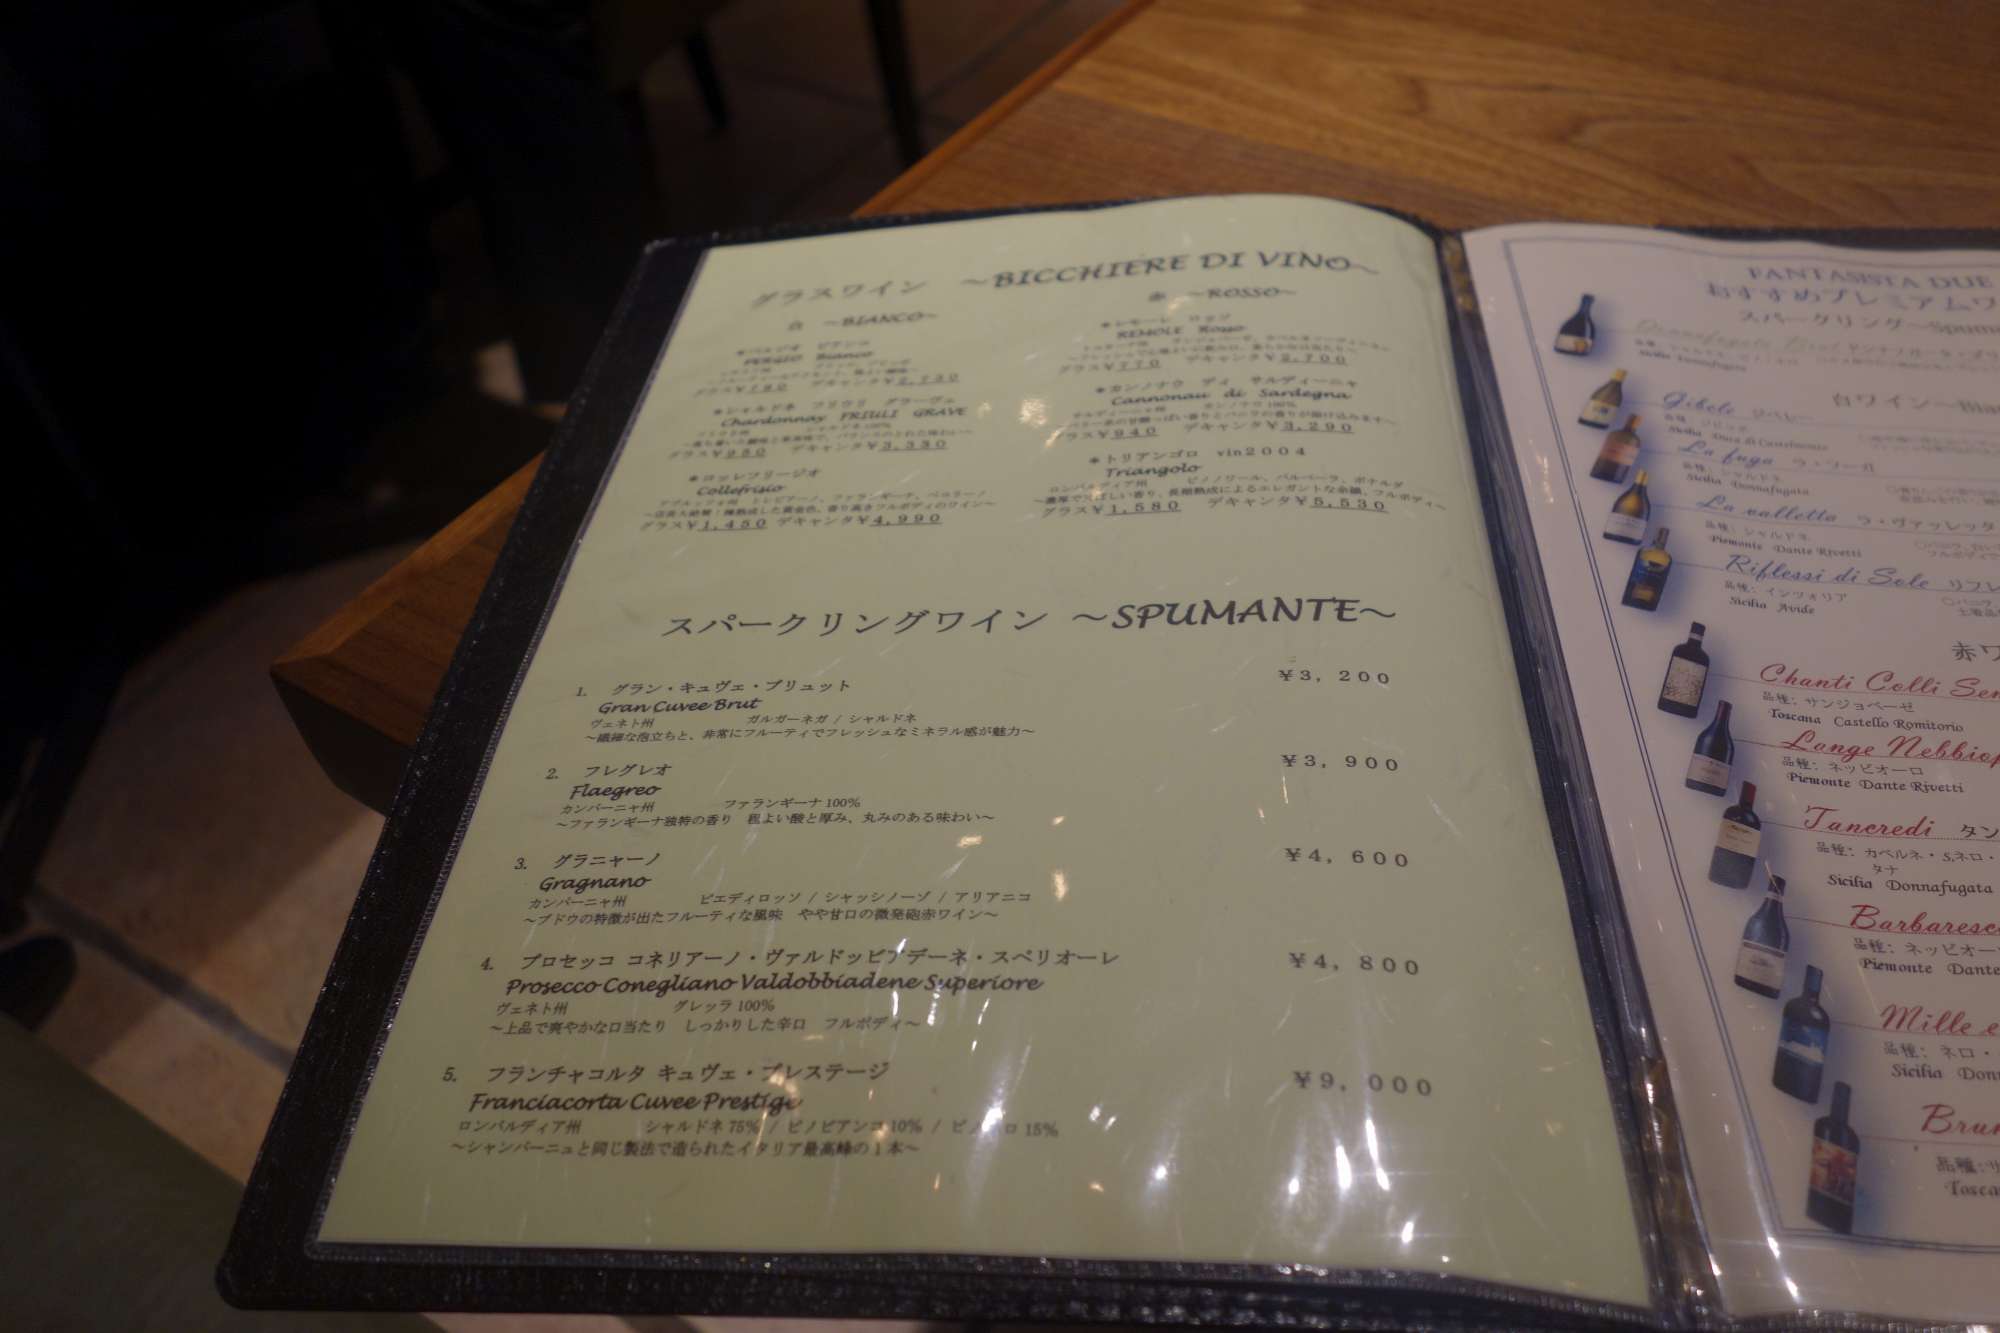 グラスワイン ～BICCHIERE DI VINO～
白 ～BIANCO～
Bianco
デキャンタ￥2,730
＊シャルドネ フリウリ グラーヴェ
Chardonnay FRIULI GRAVE
シャルドネ100%
デキャンタ￥3,330
＊コッレフリージオ
Collefrisio
アブルッツォ州 トレビアーノ、ファランギーナ、ペコリーノ
グラス￥1,450 デキャンタ￥4,990
赤 ～ROSSO～
＊レモーレ ロッソ
REMOLE Rosso
グラス￥770 デキャンタ￥2,700
＊カンノナウ ディ サルディーニャ
Cannonau di Sardegna
サルディーニャ州 カンノナウ100%
グラス￥940 デキャンタ￥3,290
＊トリアンゴロ vin2004
Triangolo
ロンバルディア州 ピノノワール、バルベーラ、ボナルダ
グラス￥1,580 デキャンタ￥5,530
スパークリングワイン ～SPUMANTE～
1. グラン・キュヴェ・ブリュット ￥3,200
Gran Cuvee Brut
ヴェネト州 ガルガーネガ / シャルドネ
～繊細な泡立ちと、非常にフルーティでフレッシュなミネラル感が魅力～
2. フレグレオ ￥3,900
Flaegreo
カンパーニャ州 ファランギーナ100%
～ファランギーナ独特の香り 程よい酸と厚み、丸みのある味わい～
3. グラニャーノ ￥4,600
Gragnano
カンパーニャ州 ピエディロッソ / シャッシノーゾ / アリアニコ
～ブドウの特徴が出たフルーティな風味 やや甘口の微発砲赤ワイン～
4. プロセッコ コネリアーノ・ヴァルドッビアデーネ・スペリオーレ ￥4,800
Prosecco Conegliano Valdobbiadene Superiore
ヴェネト州 グレッラ100%
～上品で爽やかな口当たり しっかりした辛口 フルボディ～
5. フランチャコルタ キュヴェ・プレステージ ￥9,000
Franciacorta Cuvee Prestige
ロンバルディア州 シャルドネ75% / ピノビアンコ10% / 15%
～シャンパーニュと同じ製法で造られたイタリア最高峰の1本～
FANTASISTA DUE
おすすめプレミアムワ
スパークリング～Spuma
Donnafugata Brut
Sicilia Donnafugata
白ワイン～Bia
Gibele ジベレー
Sicilia Duca di Castelmonte
La fuga ラ・フーガ
品種：シャルドネ
Sicilia Donnafugata
La valletta ラ・ヴァッレッタ
品種：シャルドネ
Piemonte Dante Rivetti
Riflessi di Sole リフレ
品種：インツォリア
Sicilia Avide
赤ワ
Chanti Colli Sen
品種：サンジョベーゼ
Toscana Castello Romitorio
Lange Nebbio
品種：ネッビオーロ
Piemonte Dante Rivetti
Tancredi タン
品種：カベルネ・S.ネロ・
タナ
Sicilia Donnafugata
Barbaresc
品種：ネッビオー
Piemonte Dante
Mille e
品種：ネロ・
Sicilia Don
Brun
品種：サ
Tosca